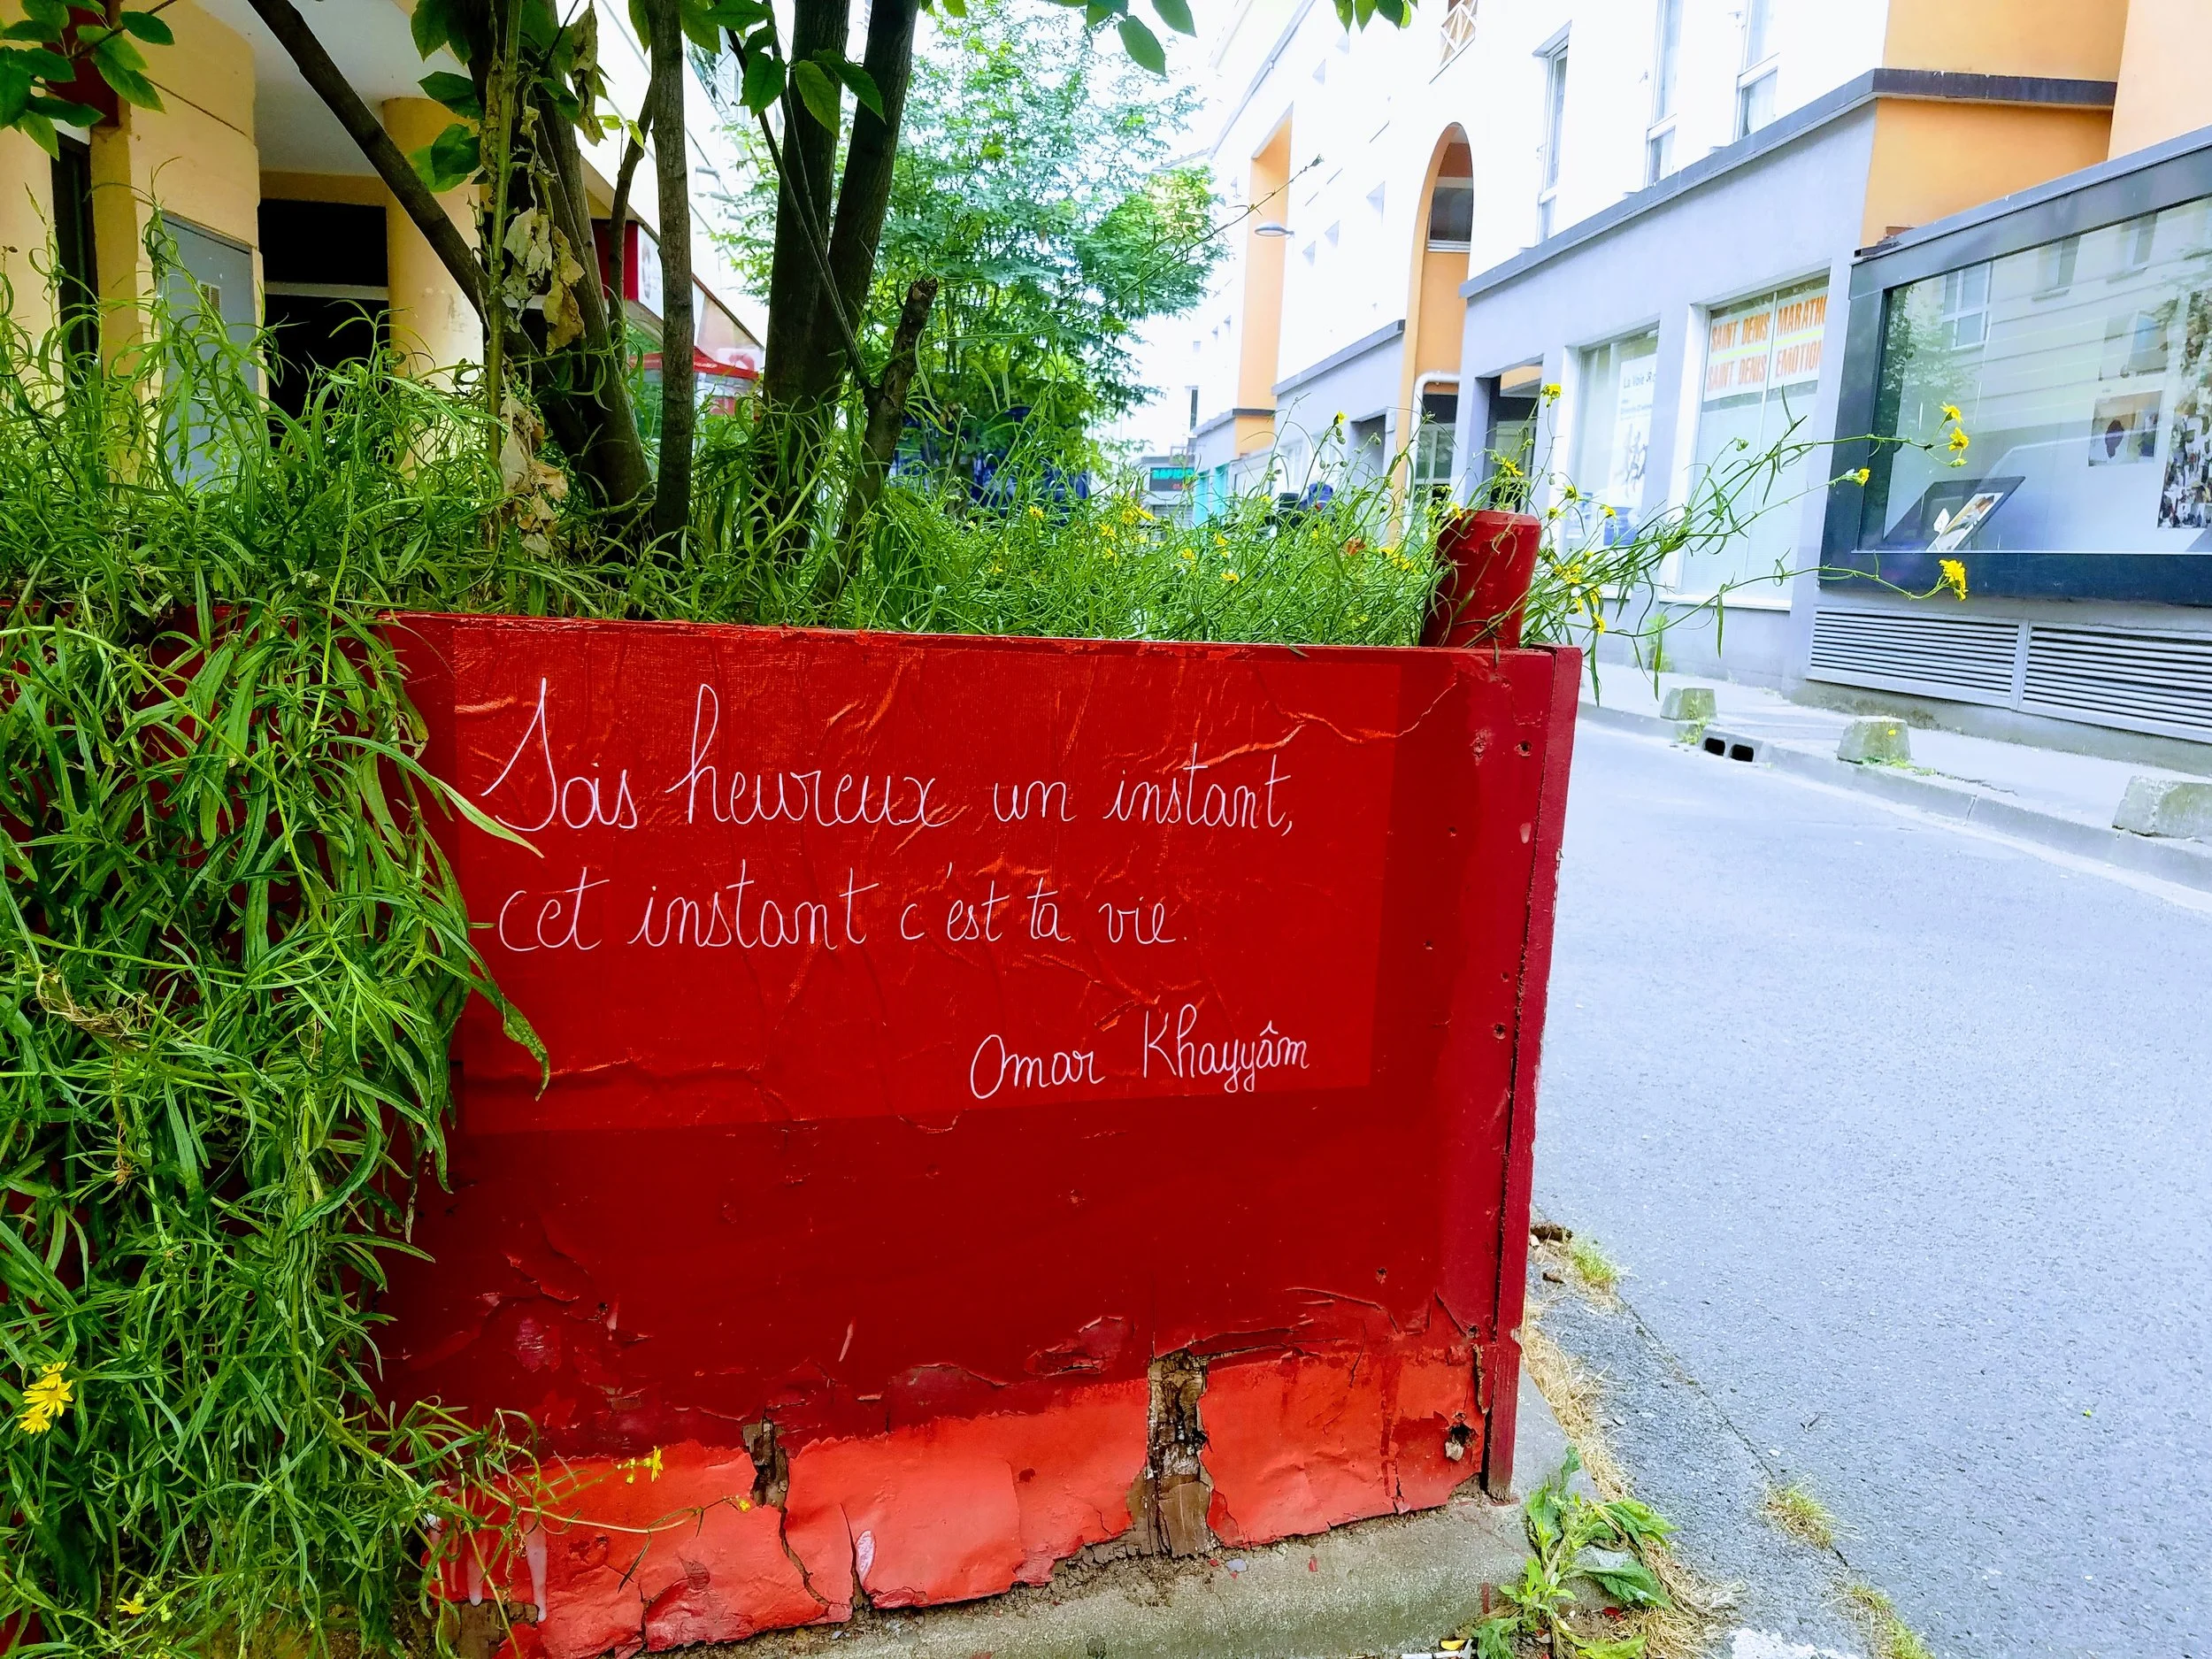 Sois heureux un instant,
cet instant c'est ta vie.
Omar Khayyâm
SAINT DENIS
SAINT DENIS EMOTION